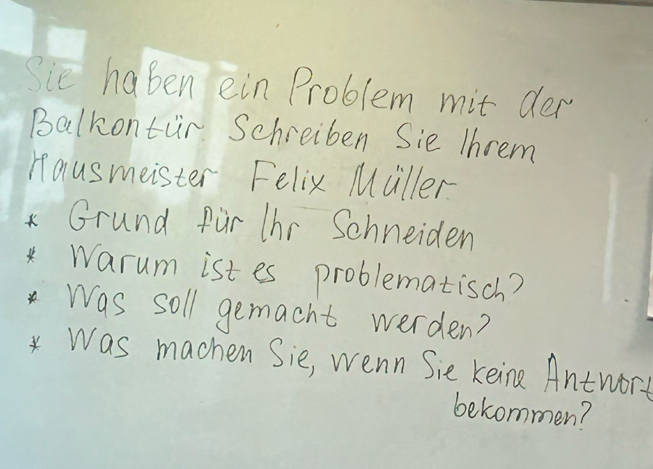 Sie haben ein Problem mit der
Balkontür. Schreiben Sie Ihrem
Hausmeister Felix Müller.
* Grund für Ihr Schneiden
* Warum ist es problematisch?
* Was soll gemacht werden?
* Was machen Sie, wenn Sie keine Antwort
bekommen?